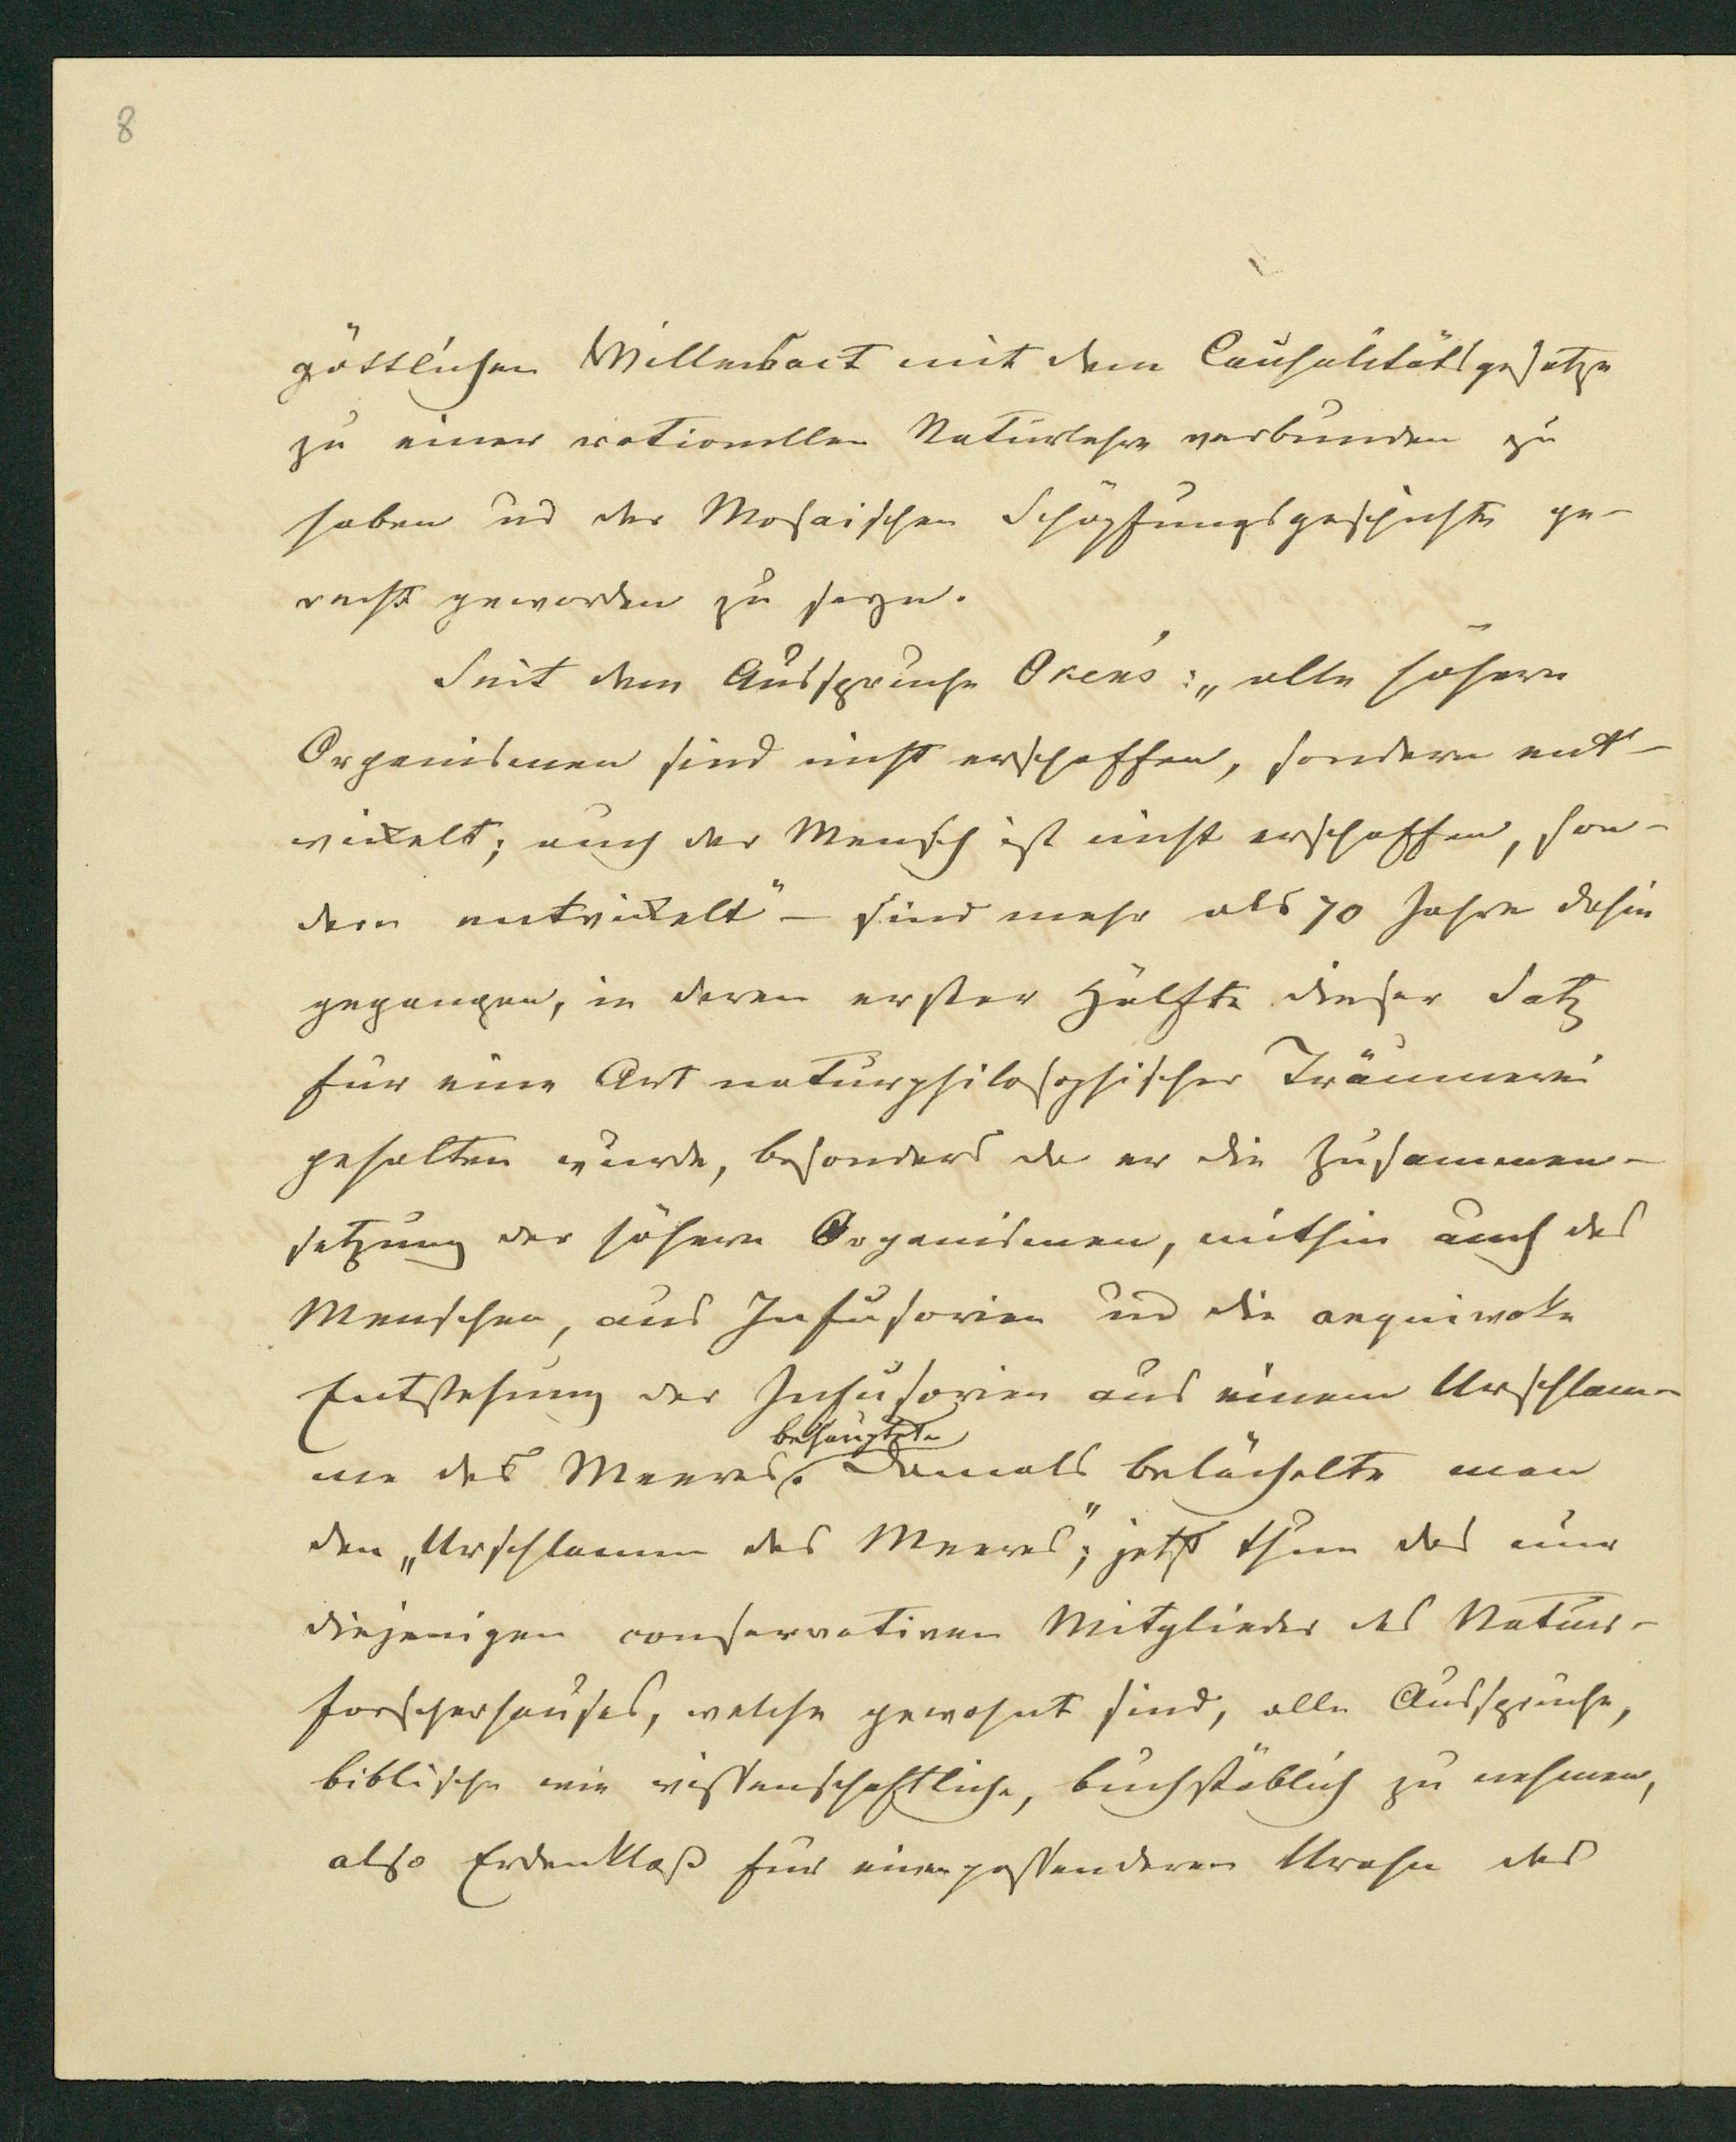 8
göttlichen Willensact mit dem Causalitätsgesetze
zu einer rationellen Naturlehre verbunden zu
haben und der Mosaischen Schöpfungsgeschichte ge-
recht geworden zu seyn.
Seit dem Ausspruche Oken's: „alle höhern
Organismen sind nicht erschaffen, sondern ent-
wickelt; auch der Mensch ist nicht erschaffen, son-
dern entwickelt" – sind mehr als 70 Jahre dahin
gegangen, in deren erster Hälfte dieser Satz
für eine Art naturphilosophischer Träumerei
gehalten wurde, besonders da er die Zusammen-
setzung der höhern Organismen, mithin auch des
Menschen, aus Infusorien und die aequivoke
Entstehung der Infusorien aus einem Urschlam-
behauptete
me des Meeres. Damals belächelte man
den „Urschlamm des Meeres"; jetzt thun das nur
diejenigen conservativen Mitglieder des Natur-
forscherhauses, welche gewohnt sind, alle Aussprüche,
biblische wie wissenschaftliche, buchstäblich zu nehmen,
also Erdenkloß für einen passenderen Urahn des